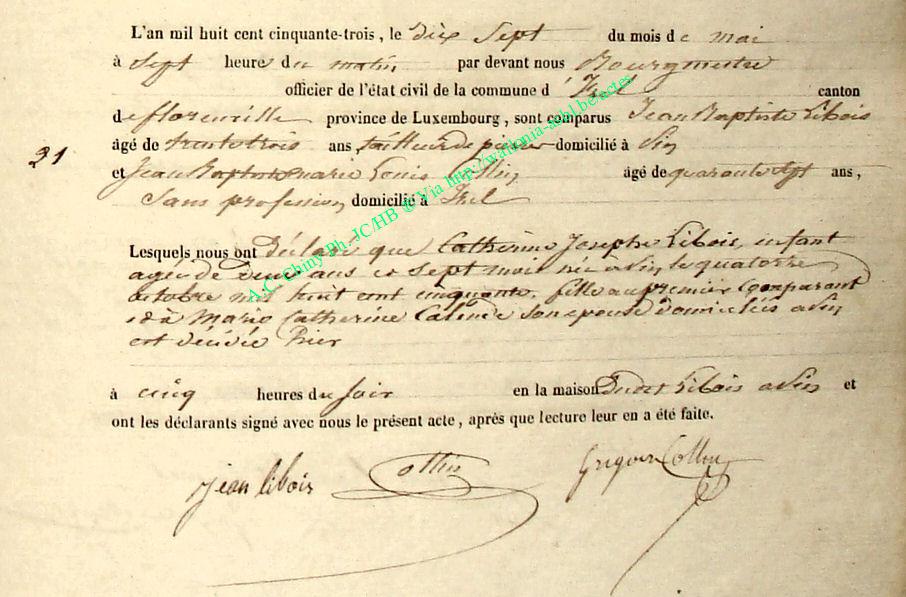 L'an mil huit cent cinquante-trois, le dix sept du mois de mai
à sept heure du matin par devant nous Bourgmestre
officier de l'état civil de la commune d' Izel canton
de florenville province de Luxembourg, sont comparus Jean Baptiste Libois
21 âgé de trente trois ans, tailleur de pierre domicilié à Pin
et Jean Baptiste marie Louis Collin âgé de quarante sept ans,
Sans profession domicilié à Izel
Lesquels nous ont Déclaré que Catherine Josephe Libois, enfant
agée de Deux ans et sept mois née à Pin le quatorze
octobre mil huit cent cinquante, fille au premier Comparant
et à Marie Catherine son epouse Domiciliés a Pin
est décédée hier
à cinq heures du soir en la maison Libois a Pin et
ont les déclarants signé avec nous le présent acte, après que lecture leur en a été faite.
jean libois Collin Grégoire Collin
A.C. Chiny Ph. JC/HB © Via http://wallonia-asbl.be/actes